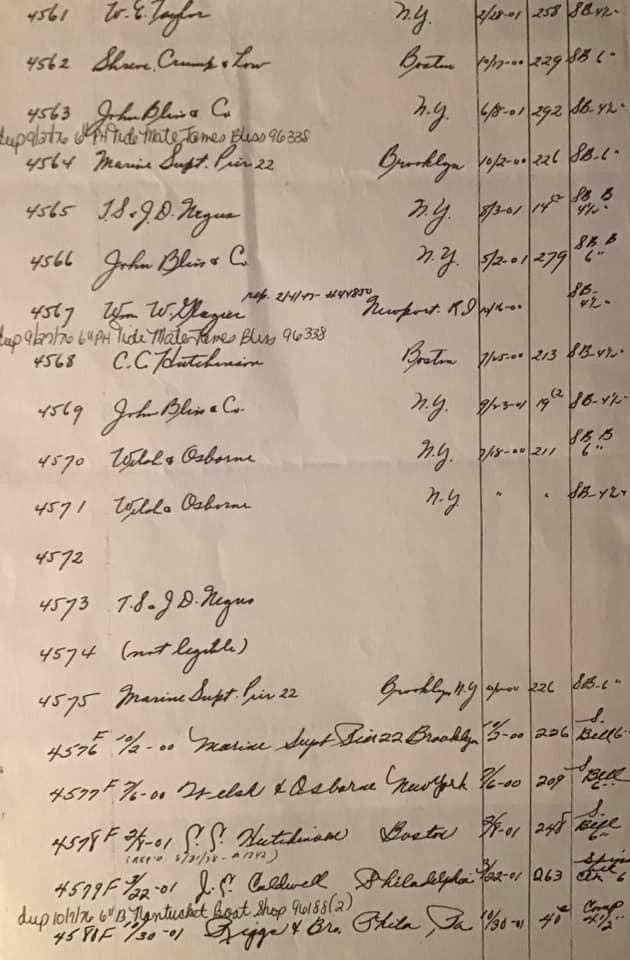 4561 W. E. Taylor N.Y. 2/28-01 258 SB-4½"
4562 Shreve, Crump & Low Boston 10/17-00 229 SB 6"
4563 John Bliss & Co N.Y. 6/8-01 292 SB-4½"
dup 9/27/76 6" PH Tide Mate James Bliss 96338
4564 Marine Supt. Pier 22 Brooklyn 10/2-00 226 SB-6"
4565 T.S. & J.D. Negus N.Y. 8/3-01 14 SB B 4½"
4566 John Bliss & Co N.Y. 5/2-01 279 SB B 6"
rep. 2/4/47- #44850
4567 Wm W. Glazier Newport. R.I 10/16-00 SB- 4½"
dup 9/27/76 6" PH Tide Mate James Bliss 96338
4568 C. C Hutchinson Boston 7/25-00 213 SB-4½"
4569 John Bliss & Co. N.Y. 9/23-01 19 SB-4½"
4570 Welsh & Osborne N.Y. 7/18-00 211 SB B 6"
4571 Welsh & Osborne N.Y " " SB-4½"
4572
4573 T.S. & J D. Negus
4574 (not legible)
4575 Marine Supt. Pier 22 Brooklyn N.Y 226 SB-6"
4576 F 10/2-00 Marine Supt Pier 22 Brooklyn 10/2-00 226 S. Bell 6"
4577 F 7/6-00 Welsh & Osborne New York 7/6-00 209 S Bell 6"
4578 F 2/8-01 Hutchinson Boston 2/8-01 248 S. Bell 6"
4579 F 3/22-01 J. E. Caldwell Philadelphia 3/22-01 263 6
dup 10/7/76 6" B Nantucket Boat Shop 96188 (2)
4580 F 10/30-01 Riggs & Bro. Phila, Pa 10/30-01 40 Comp 4½"